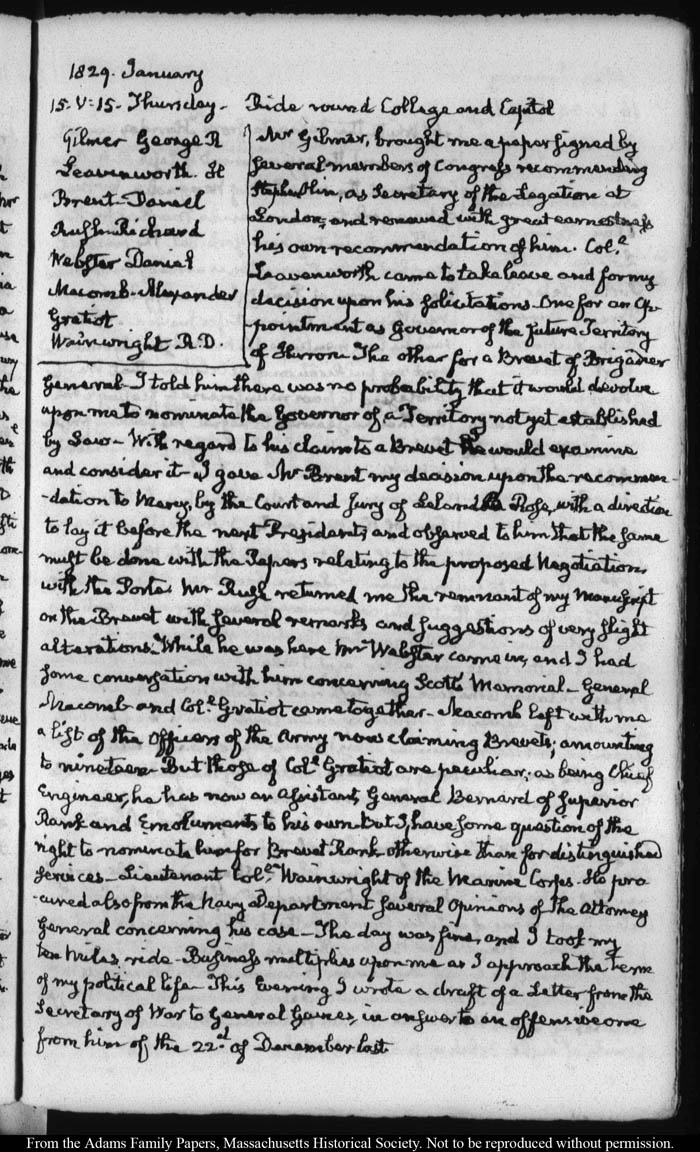 1829. January
15. V:15. Thursday. Ride round College and Capitol
Gilmer George R
Leavenworth. H
Brent. Daniel
Rush Richard
Webster Daniel
Macomb. Alexander
Gratiot
Wainwright R. D.
Mr Gilmer, brought me a paper signed by
several members of Congress recommending
as Secretary of the Legation at
London, and renewed with great earnestness
his own recommendation of him. Coll.
Leavenworth came to take leave and for my
decision upon his solicitations. One for an Ap-
pointment as Governor of the future Territory
of Huron. The other for a Brevet of Brigadier
General. I told him there was no probability that it would devolve
upon me to nominate the Governor of a Territory not yet established
by Law. With regard to his claim to a Brevet would examine
and consider it. I gave Mr Brent my decision upon the recommen-
-dation to Mercy, by the Court and Jury of Rose, with a direction
to lay it before the next President; and observed to him that the same
must be done with the Papers relating to the proposed Negotiation,
with the Porte. Mr Rush returned me the remnant of my Manuscript
on the Brevet with several remarks and suggestions of very slight
alterations. While he was here Mr Webster came in, and I had
some conversation with him concerning Scott's Memorial. General
Macomb and Coll. Gratiot came together. Macomb left with me
a list of the Officers of the Army now claiming Brevets; amounting
to nineteen. But those of Coll. Gratiot are peculiar; as being Chief
Engineer, he has now an Assistant, General Bernard of superior
Rank and Emoluments to his own. But I have some question of the
right to nominate him for Brevet Rank otherwise than for distinguished
services. Lieutenant Coll. Wainwright of the Marine Corps. He pro-
-cured also from the Navy Department several Opinions of the Attorney
General concerning his case. The day was fine, and I took my
ten miles ride. Business multiplies upon me as I approach the term
of my political life. This Evening I wrote a draft of a Letter from the
Secretary of War to General Gaines, in answer to an offensive one
from him of the 22.d of December last.
From the Adams Family Papers, Massachusetts Historical Society. Not to be reproduced without permission.